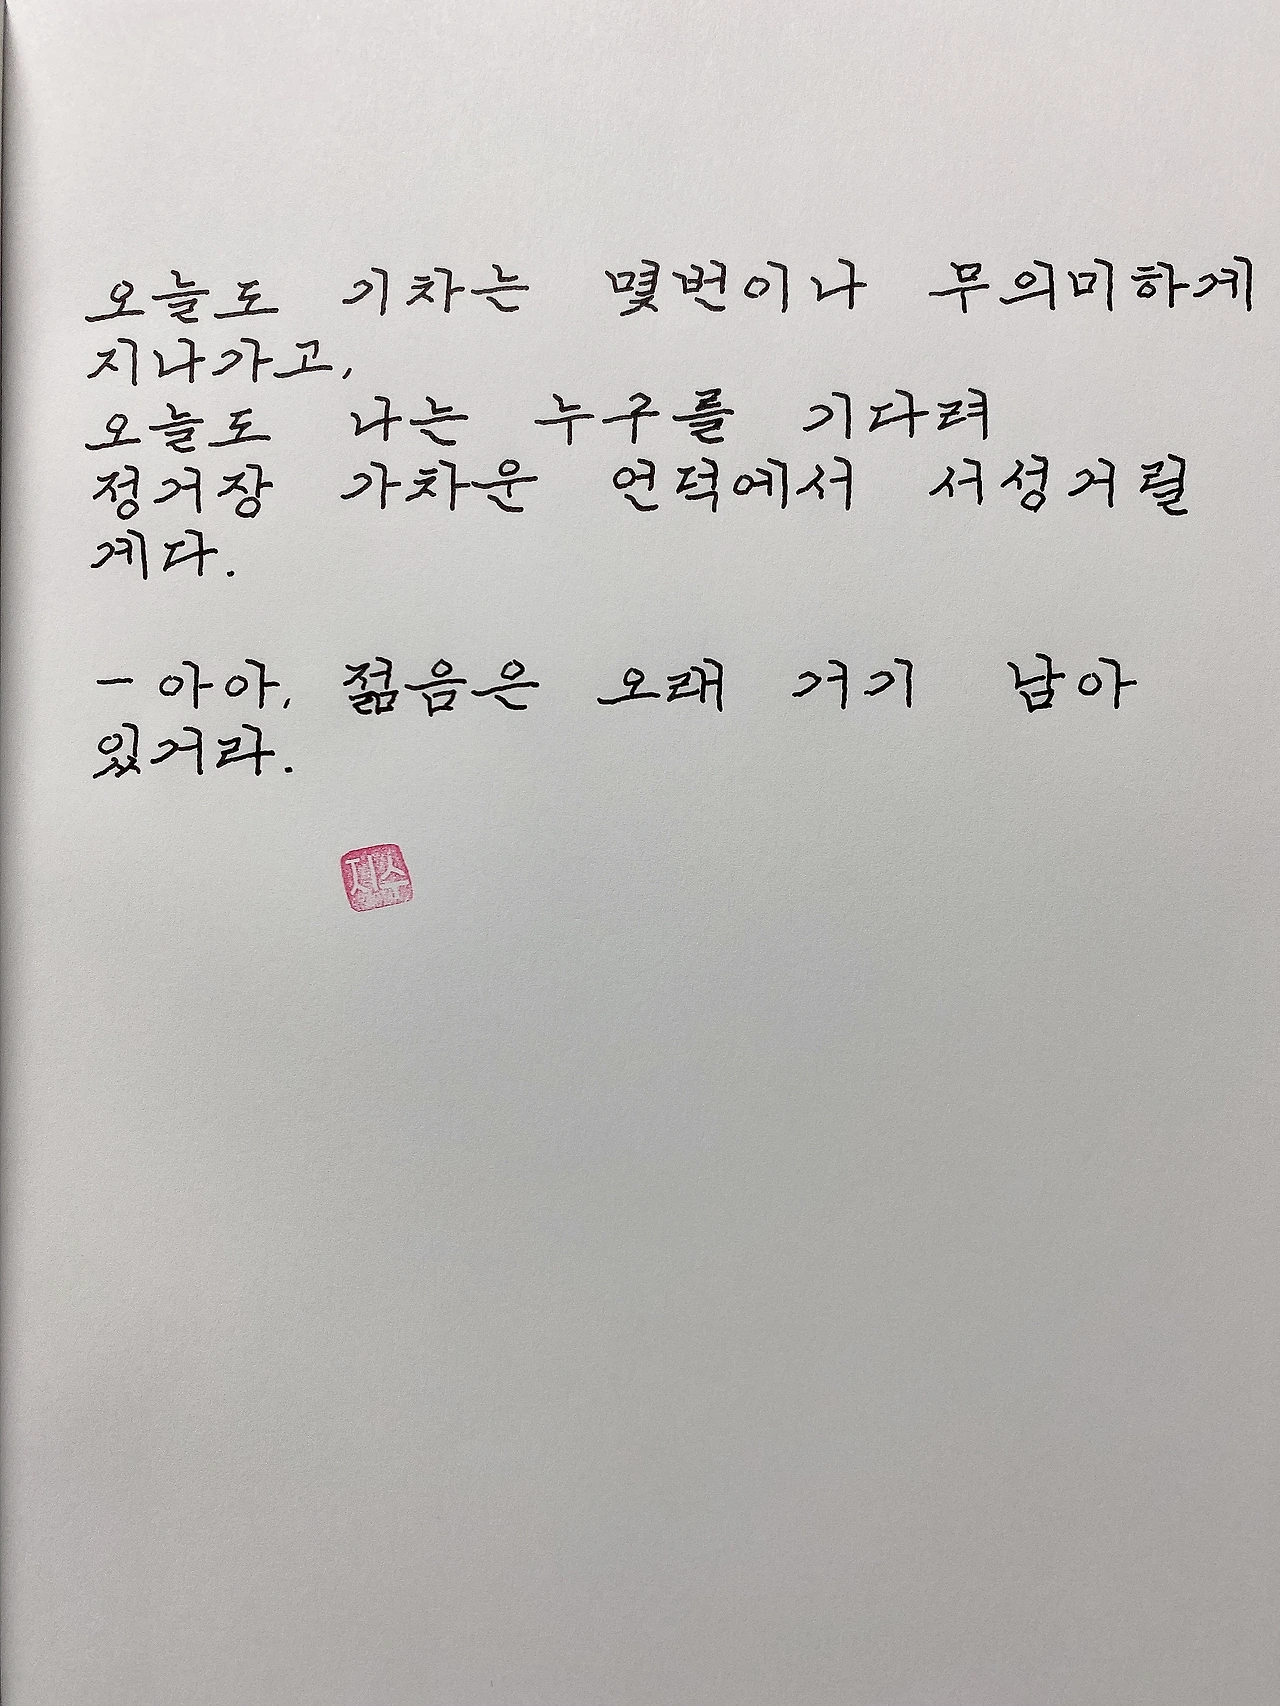 오늘도 기차는 몇번이나 무의미하게
지나가고,
오늘도 나는 누구를 기다려
정거장 가차운 언덕에서 서성거릴
게다.
- 아아, 젊음은 오래 거기 남아
있거라.